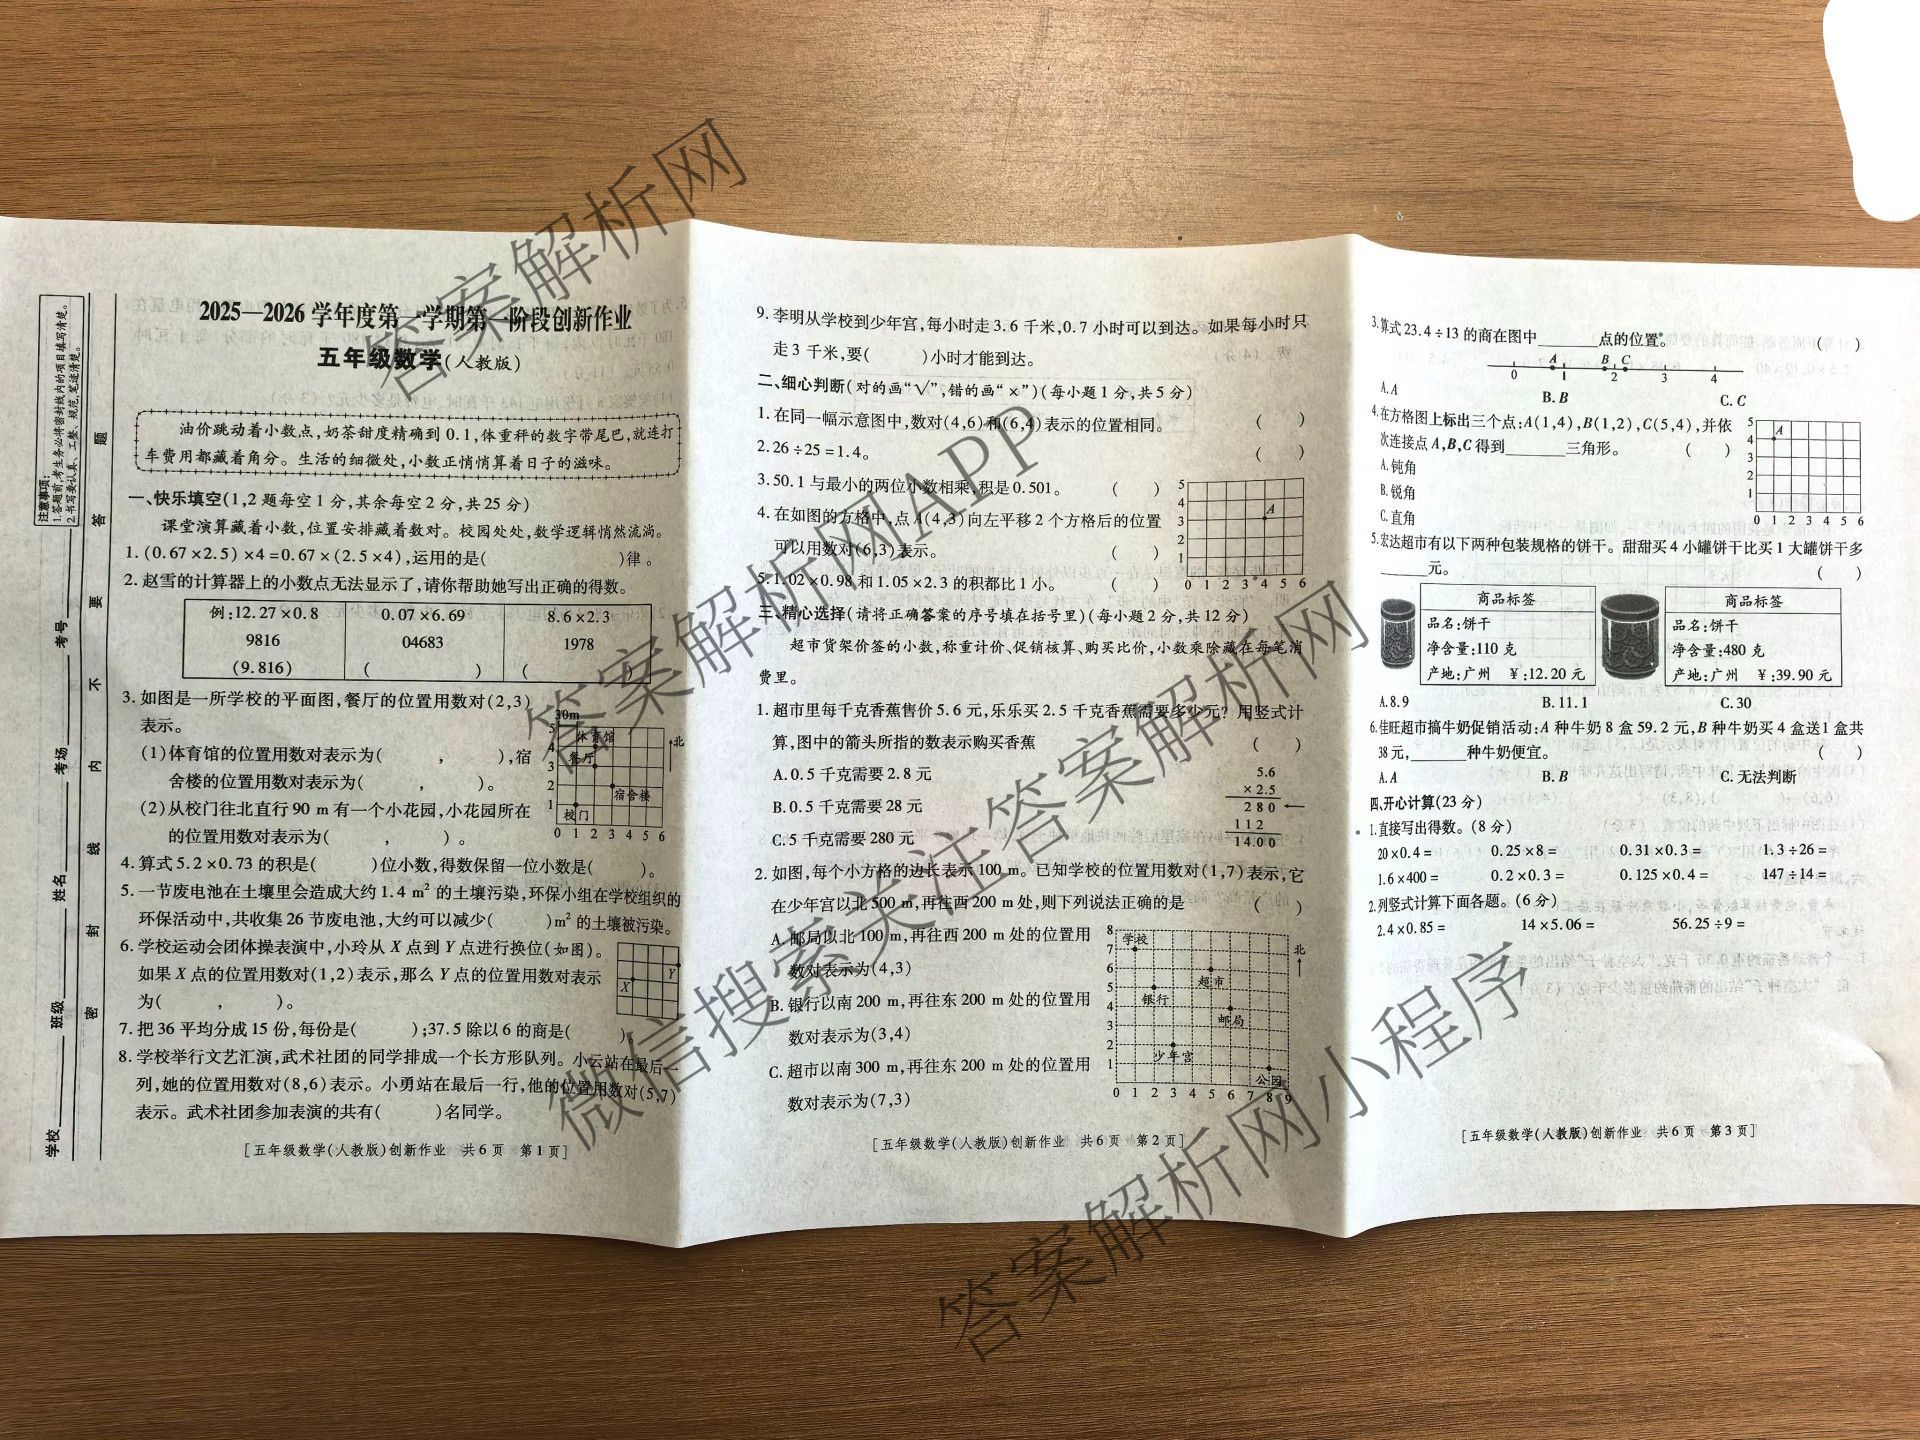 注意事项:
1.答题前,考生务必将密封线内的项目填写清楚。
2.书写要认真、工整、规范,笔迹清楚。
学校 班级 姓名 考场 考号
密 封 线 内 不 要 答 题
2025—2026学年度第一学期第一阶段创新作业
五年级数学(人教版)
油价跳动着小数点,奶茶甜度精确到0.1,体重秤的数字带尾巴,就连打
车费用都藏着角分。生活的细微处,小数正悄悄算着日子的滋味。
一、快乐填空(1,2题每空1分,其余每空2分,共25分)
课堂演算藏着小数,位置安排藏着数对。校园处处,数学逻辑悄然流淌。
1.(0.67×2.5)×4=0.67×(2.5×4),运用的是( )律。
2.赵雪的计算器上的小数点无法显示了,请你帮助她写出正确的得数。
例:12.27×0.8 0.07×6.69 8.6×2.3
9816 04683 1978
(9.816) ( ) ( )
3.如图是一所学校的平面图,餐厅的位置用数对(2,3)
表示。
(1)体育馆的位置用数对表示为( , ),宿
舍楼的位置用数对表示为( , )。
(2)从校门往北直行90 m有一个小花园,小花园所在
的位置用数对表示为( , )。
30m
5
4
3
2
1
0 1 2 3 4 5 6
体育馆
餐厅
宿舍楼
校门
北
4.算式5.2×0.73的积是( )位小数,得数保留一位小数是( )。
5.一节废电池在土壤里会造成大约1.4 m²的土壤污染,环保小组在学校组织的
环保活动中,共收集26节废电池,大约可以减少( )m²的土壤被污染。
6.学校运动会团体操表演中,小玲从X点到Y点进行换位(如图)。
如果X点的位置用数对(1,2)表示,那么Y点的位置用数对表示
为( , )。
X
Y
7.把36平均分成15份,每份是( );37.5除以6的商是( )。
8.学校举行文艺汇演,武术社团的同学排成一个长方形队列。小云站在最后一
列,她的位置用数对(8,6)表示。小勇站在最后一行,他的位置用数对(5,7)
表示。武术社团参加表演的共有( )名同学。
[五年级数学(人教版)创新作业 共6页 第1页]
9.李明从学校到少年宫,每小时走3.6千米,0.7小时可以到达。如果每小时只
走3千米,要( )小时才能到达。
二、细心判断(对的画“√”,错的画“×”)(每小题1分,共5分)
1.在同一幅示意图中,数对(4,6)和(6,4)表示的位置相同。 ( )
2.26÷25=1.4。 ( )
3.50.1与最小的两位小数相乘,积是0.501。 ( )
4.在如图的方格中,点A(4,3)向左平移2个方格后的位置
可以用数对(6,3)表示。 ( )
5.1.02×0.98和1.05×2.3的积都比1小。 ( )
5
4
3
2
1
0 1 2 3 4 5 6
A
三、精心选择(请将正确答案的序号填在括号里)(每小题2分,共12分)
超市货架价签的小数,称重计价、促销核算、购买比价,小数乘除藏在每笔消
费里。
1.超市里每千克香蕉售价5.6元,乐乐买2.5千克香蕉需要多少元?用竖式计
算,图中的箭头所指的数表示购买香蕉 ( )
A.0.5千克需要2.8元
B.0.5千克需要28元
C.5千克需要280元
5.6
×2.5
280 ←
112
14.00
2.如图,每个小方格的边长表示100 m。已知学校的位置用数对(1,7)表示,它
在少年宫以北500 m,再往西200 m处,则下列说法正确的是 ( )
A.邮局以北100 m,再往西200 m处的位置用
数对表示为(4,3)
B.银行以南200 m,再往东200 m处的位置用
数对表示为(3,4)
C.超市以南300 m,再往东200 m处的位置用
数对表示为(7,3)
8
7
6
5
4
3
2
1
0 1 2 3 4 5 6 7 8 9
学校
超市
银行
邮局
少年宫
公园
北
[五年级数学(人教版)创新作业 共6页 第2页]
3.算式23.4÷13的商在图中______点的位置。 ( )
A B C
0 1 2 3 4
A.A B.B C.C
4.在方格图上标出三个点:A(1,4),B(1,2),C(5,4),并依
次连接点A,B,C得到______三角形。 ( )
A.钝角
B.锐角
C.直角
5
4
3
2
1
0 1 2 3 4 5 6
A
5.宏达超市有以下两种包装规格的饼干。甜甜买4小罐饼干比买1大罐饼干多
______元。 ( )
商品标签
品名:饼干
净含量:110克
产地:广州 ¥:12.20元
商品标签
品名:饼干
净含量:480克
产地:广州 ¥:39.90元
A.8.9 B.11.1 C.30
6.佳旺超市搞牛奶促销活动:A种牛奶8盒59.2元,B种牛奶买4盒送1盒共
38元,______种牛奶便宜。 ( )
A.A B.B C.无法判断
四、开心计算(23分)
1.直接写出得数。(8分)
20×0.4= 0.25×8= 0.31×0.3= 1.3÷26=
1.6×400= 0.2×0.3= 0.125×0.4= 147÷14=
2.列竖式计算下面各题。(6分)
2.4×0.85= 14×5.06= 56.25÷9=
[五年级数学(人教版)创新作业 共6页 第3页]
答案解析网
答案解析网APP
微信搜索关注答案解析网
答案解析网小程序